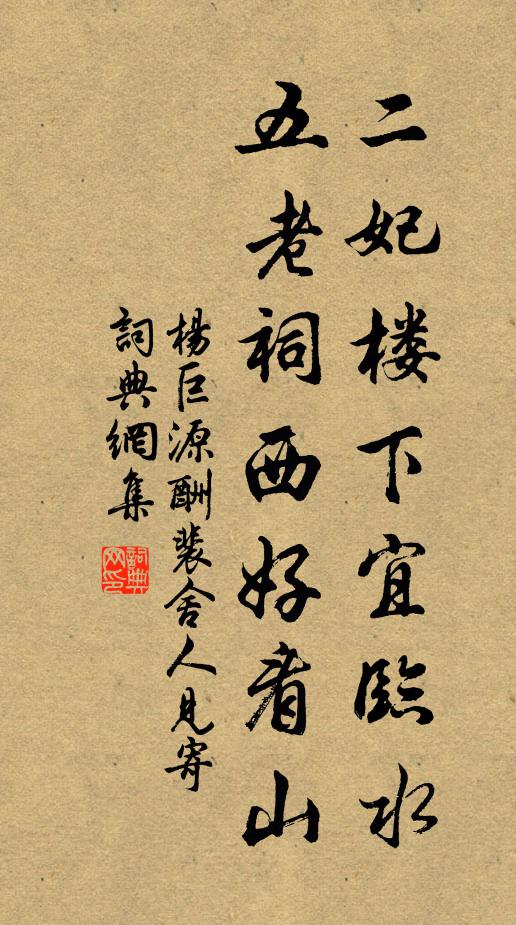 二妃楼下宜臨水
五老祠西好看山
楊巨源酬裴舍人見寄
詞典網集
詞典网印